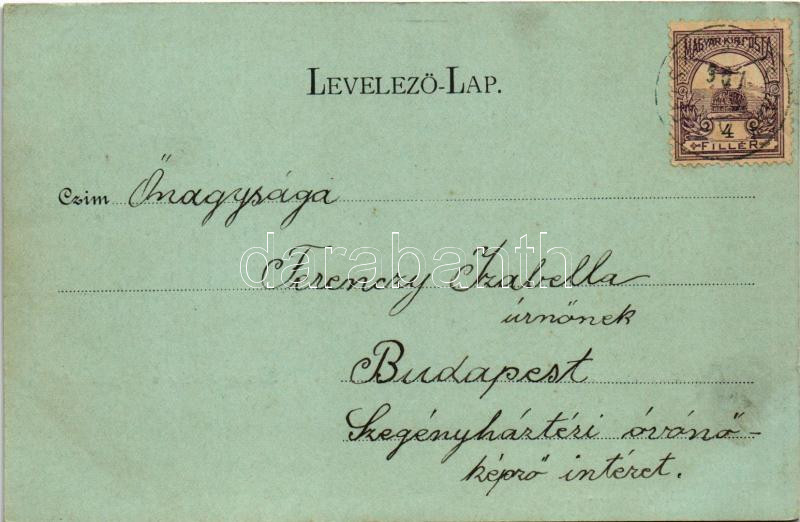 MAGYAR KIR. POSTA
4
FILLÉR
LEVELEZŐ-LAP.
Czim Őnagysága
Ferenczy Izabella
úrnőnek
Budapest
Szegényháztéri óvónő-
képző intézet.
darabanth.com